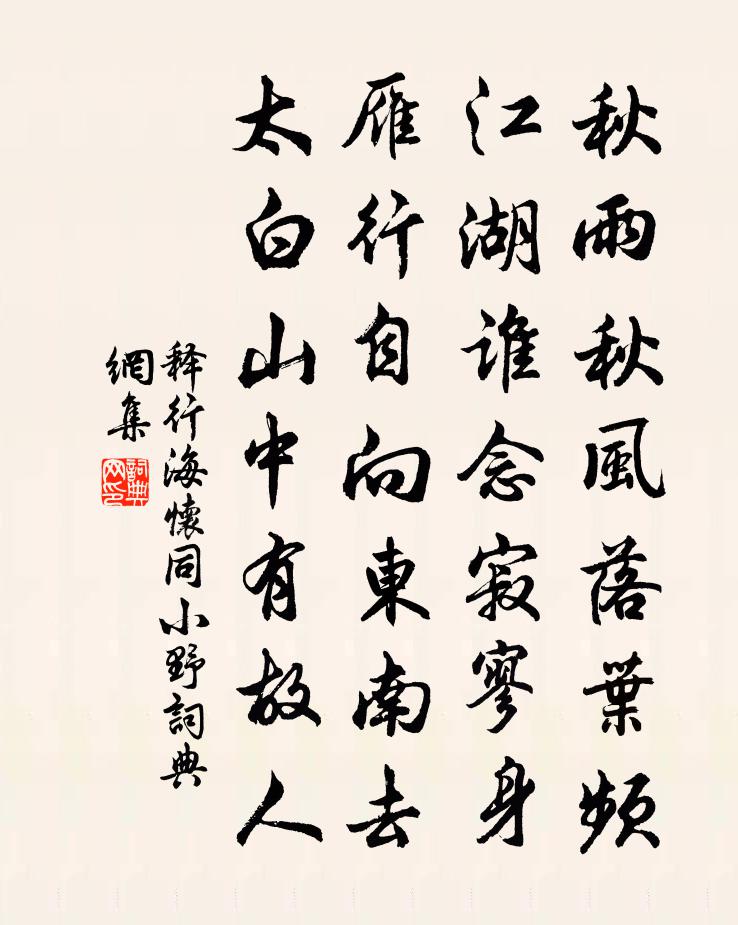 秋雨秋風落葉頻
江湖誰念寂寥身
雁行自向東南去
太白山中有故人
释行海懷同小野詞典
網集
詞典
网印